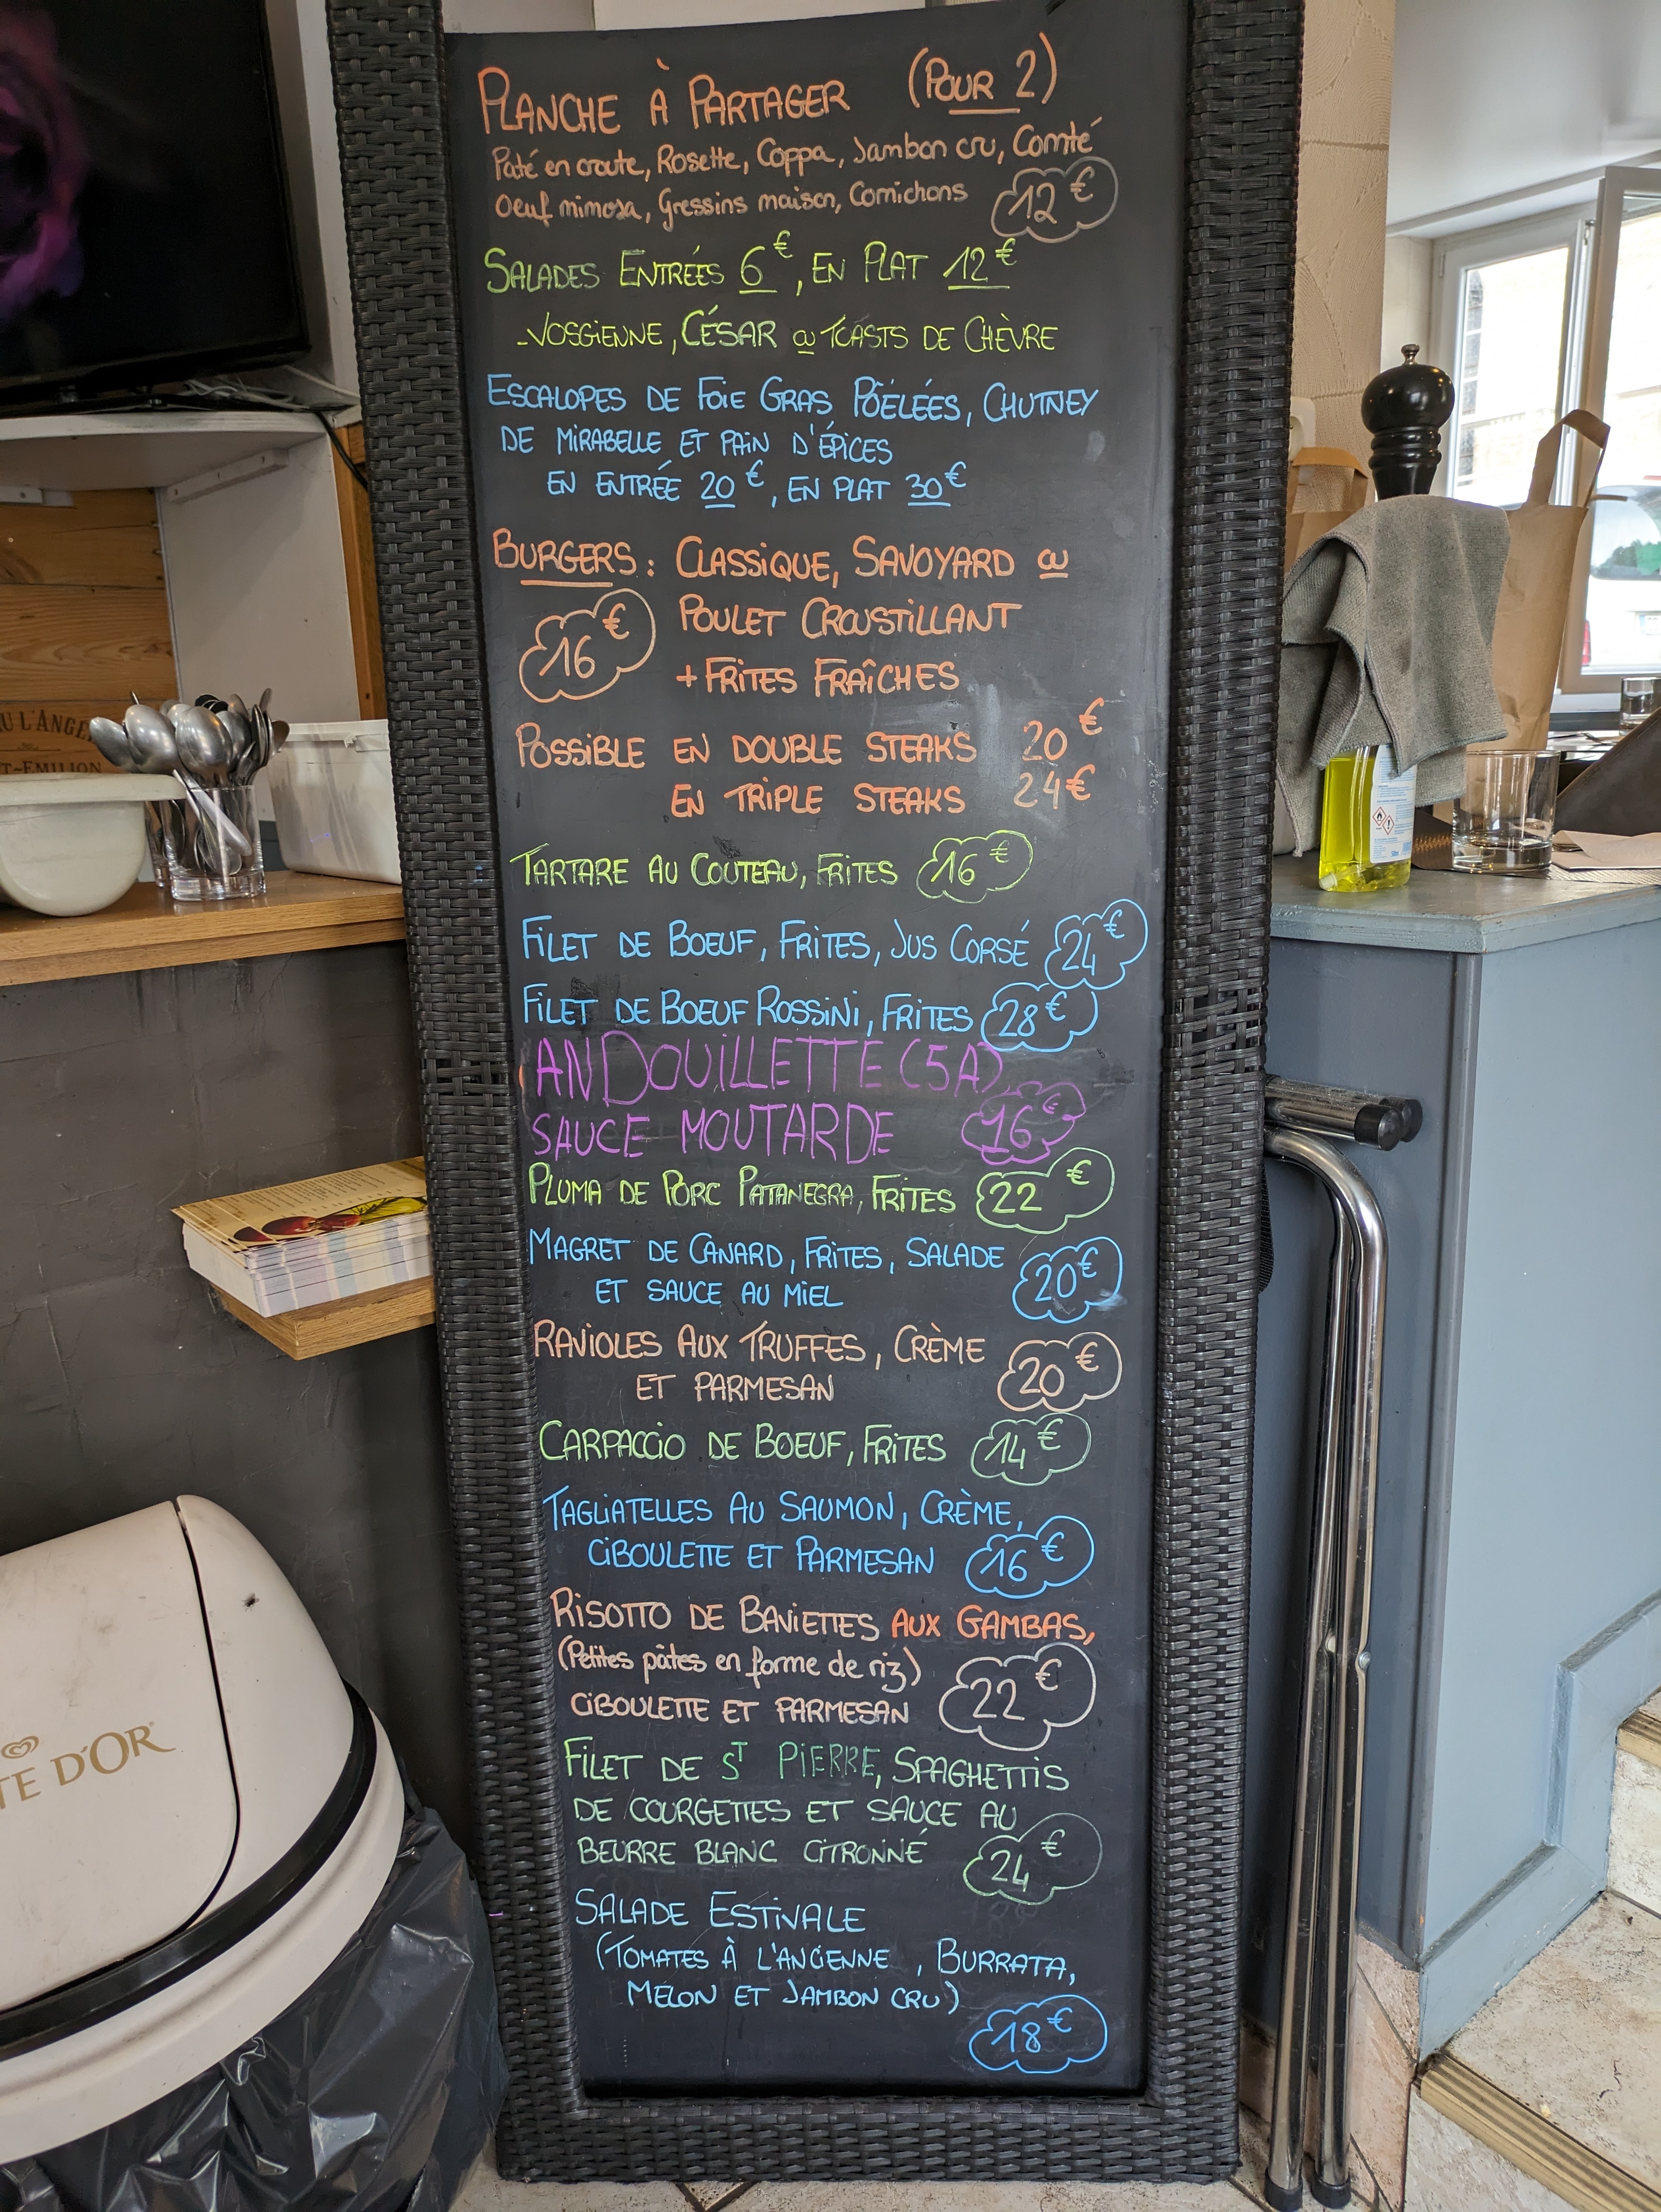 PLANCHE À PARTAGER (POUR 2)
Paté en croute, Rosette, Coppa, Jambon cru, Comté
Oeuf mimosa, Gressins maison, Cornichons 12€
SALADES ENTRÉES 6€, EN PLAT 12€
-VOSGIENNE, CÉSAR ou TOASTS DE CHÈVRE
ESCALOPES DE FOIE GRAS PÖÊLÉES, CHUTNEY
DE MIRABELLE ET PAIN D'ÉPICES
EN ENTRÉE 20€, EN PLAT 30€
BURGERS: CLASSIQUE, SAVOYARD ou
16€ POULET CROUSTILLANT
+ FRITES FRAÎCHES
POSSIBLE EN DOUBLE STEAKS 20€
EN TRIPLE STEAKS 24€
TARTARE AU COUTEAU, FRITES 16€
FILET DE BOEUF, FRITES, JUS CORSÉ 24€
FILET DE BOEUF ROSSINI, FRITES 28€
ANDOUILLETTE (5A)
SAUCE MOUTARDE 16€
PLUMA DE PORC PATANEGRA, FRITES 22€
MAGRET DE CANARD, FRITES, SALADE
ET SAUCE AU MIEL 20€
RAVIOLES AUX TRUFFES, CRÈME
ET PARMESAN 20€
CARPACCIO DE BOEUF, FRITES 14€
TAGLIATELLES AU SAUMON, CRÈME,
CIBOULETTE ET PARMESAN 16€
RISOTTO DE BAVIETTES AUX GAMBAS,
(Petites pâtes en forme de riz)
CIBOULETTE ET PARMESAN 22€
FILET DE ST PIERRE, SPAGHETTIS
DE COURGETTES ET SAUCE AU
BEURRE BLANC CITRONNÉ 24€
SALADE ESTIVALE
(TOMATES À L'ANCIENNE, BURRATA,
MELON ET JAMBON CRU)
18€
U L'ANGE
T-EMILION
TE D'OR